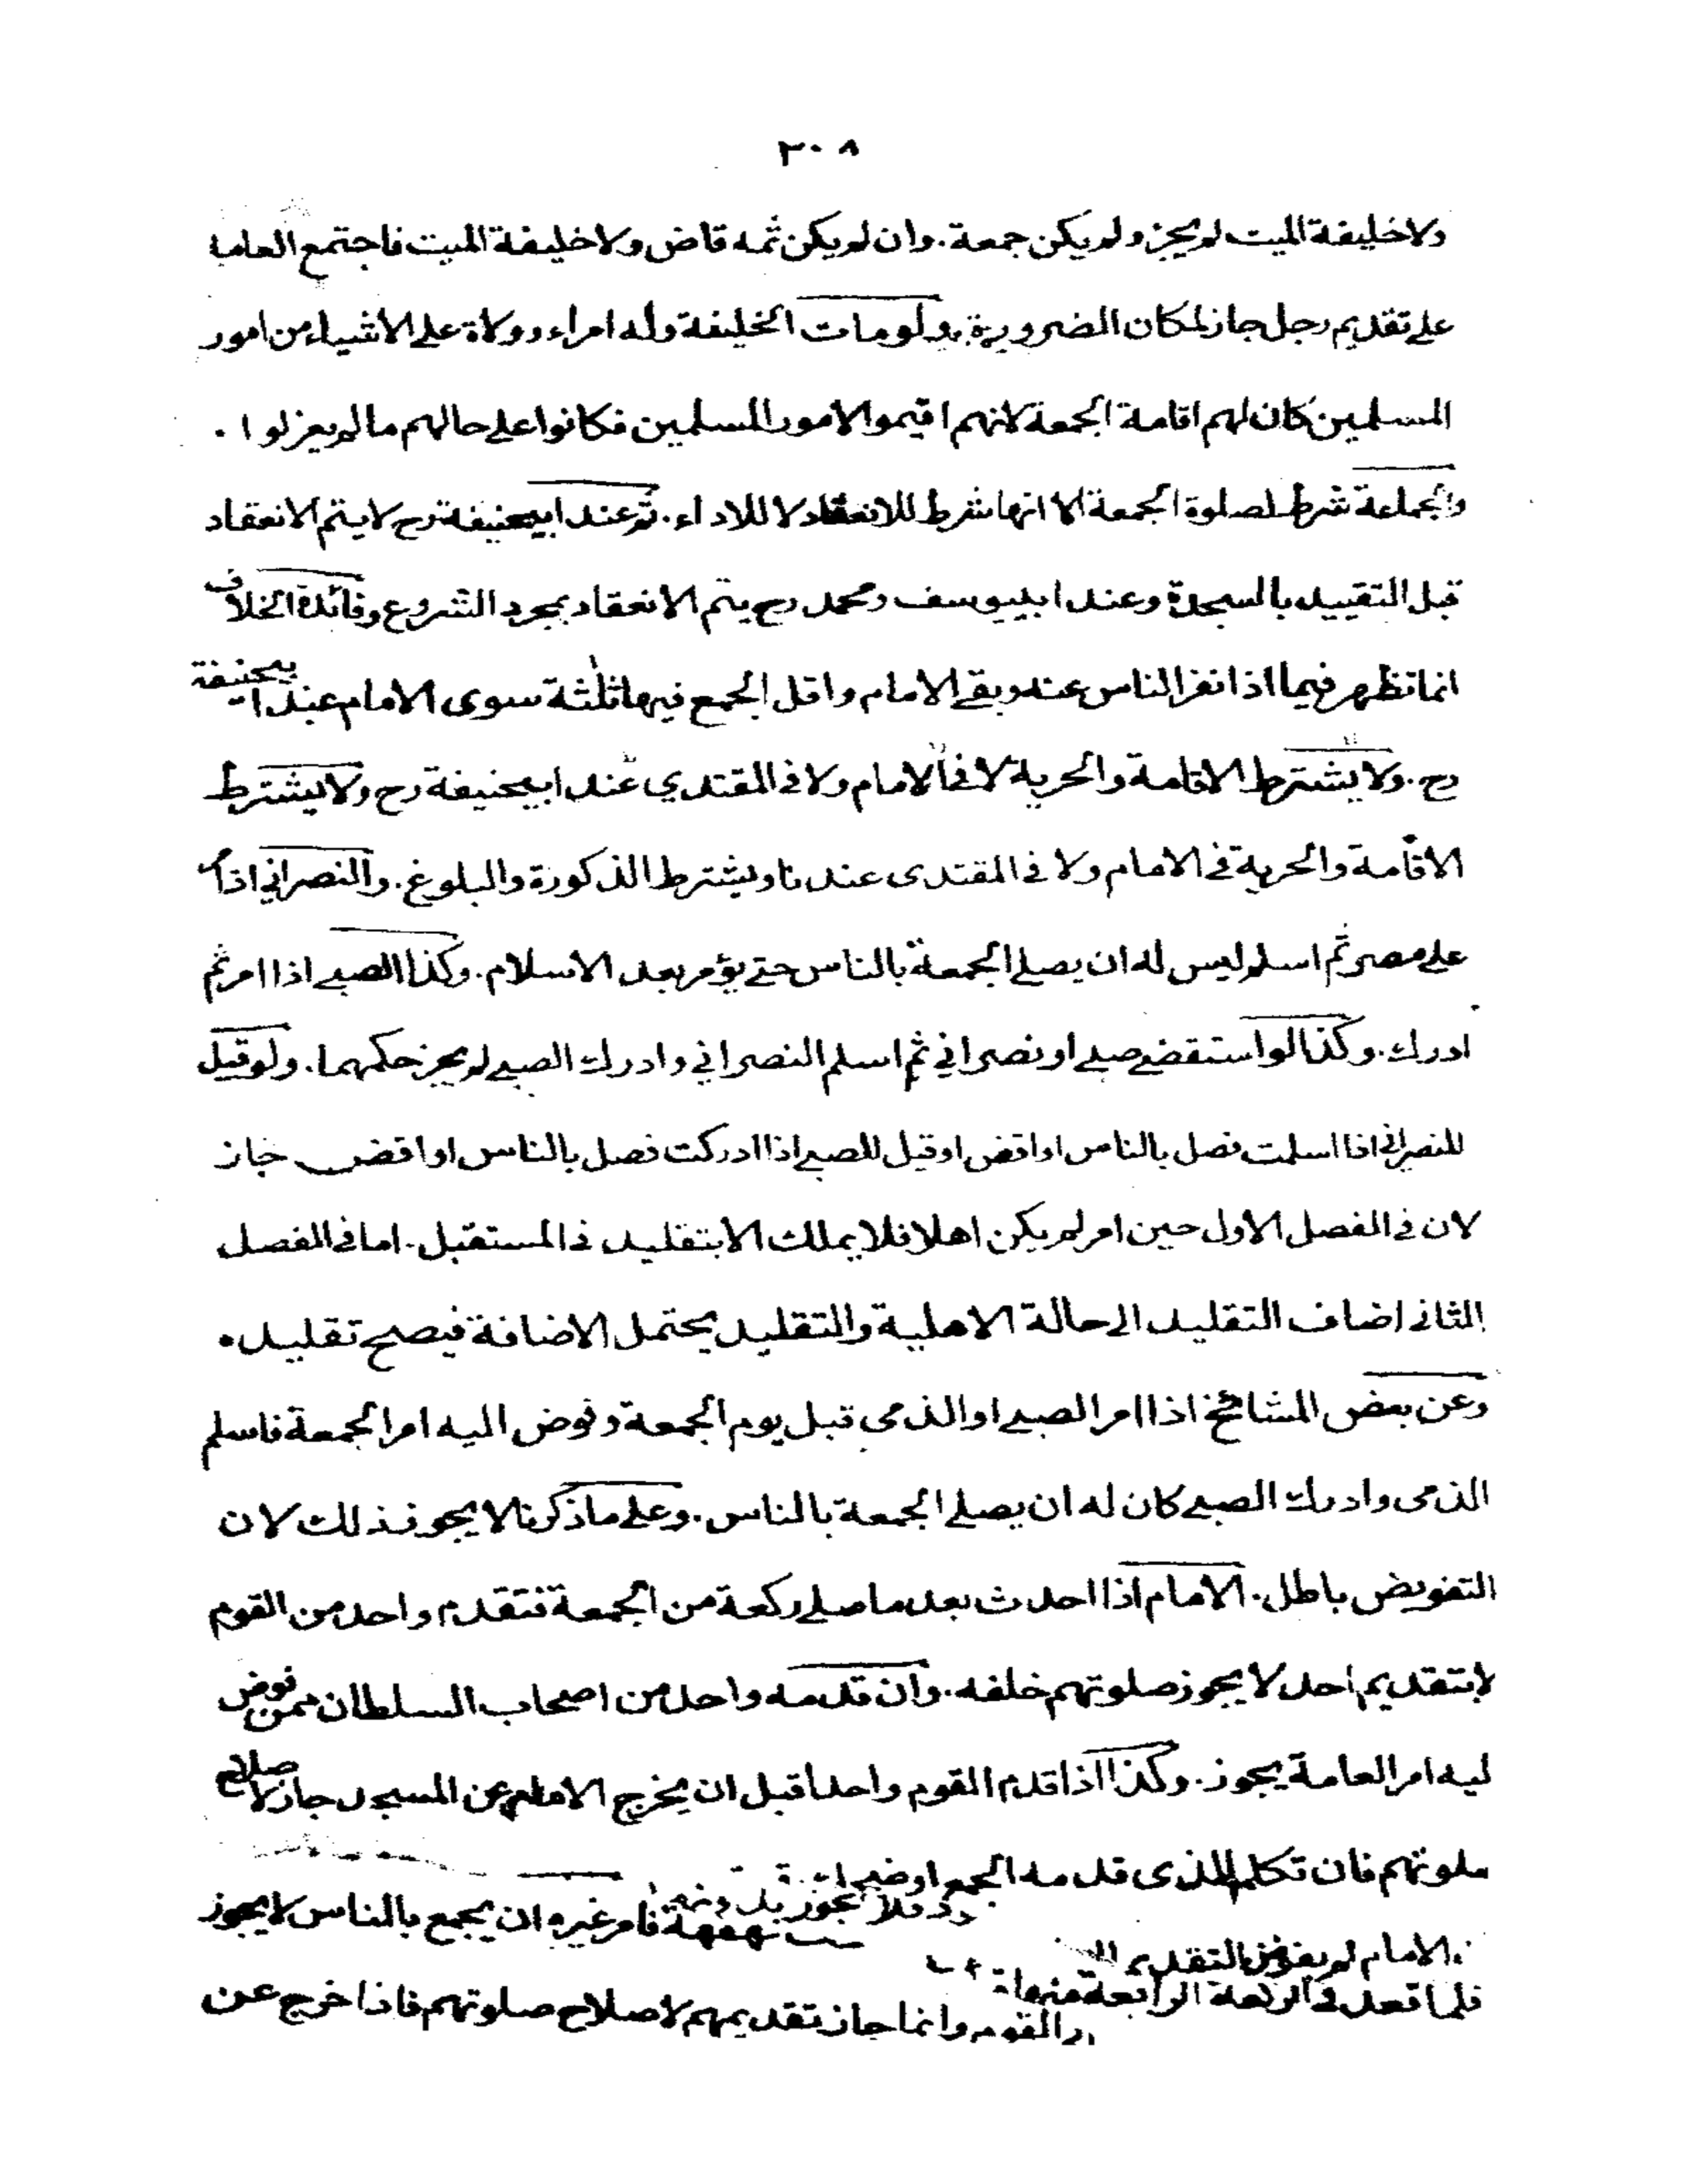 ٣٠٨
ولا خليفة الميت لم يجز ولم يكن جمعة. وان لم يكن ثمه قاض ولا خليفة الميت فاجتمع العامة
على تقديم رجل جاز لمكان الضرورة. ولومات الخليفة وله امراء وولاة على الاشياء من امور
المسلمين كان لهم اقامة الجمعة لانهم اقيموا لامور المسلمين فكانوا على حالهم ما لم يعزلوا.
والجماعة شرط لصلوة الجمعة الا انها شرط للانعقاد لا للاداء. ثم عند ابيحنيفة رح لا يتم الانعقاد
قبل التقييد بالسجدة وعند ابييوسف ومحمد رح يتم الانعقاد بمجرد الشروع وفائدة الخلاف
انما تظهر فيما اذا نفر الناس عنه وبقى الامام واقل الجمع فيها ثلثة سوى الامام عند ابيحنيفة
رح. ولا يشترط الاقامة والحرية لا فى الامام ولا فى المقتدي عند ابيحنيفة رح ولا يشترط
الاقامة والحرية فى الامام ولا فى المقتدى عندنا ويشترط الذكورة والبلوغ. والنصراني اذا
على مصر ثم اسلم ليس له ان يصلى الجمعة بالناس حتى يؤمر بعد الاسلام. وكذا الصبى اذا امر ثم
ادرك. وكذا لو استقضى صبى او نصراني ثم اسلم النصراني وادرك الصبى لم يجز حكمهما. ولو قيل
للنصراني اذا اسلمت فصل بالناس او اقض او قيل للصبى اذا ادركت فصل بالناس او اقض جاز
لان فى الفصل الاول حين امر لم يكن اهلا فلا يملك الا بتقليد فى المستقبل. اما فى الفصل
الثانى اضاف التقليد الى حالة الاهلية والتقليد يحتمل الاضافة فيصح تقليده
وعن بعض المشائخ اذا امر الصبى او الذمى قبل يوم الجمعة وفوض اليه امر الجمعة فاسلم
الذمى وادرك الصبى كان له ان يصلى الجمعة بالناس. وعلى ما ذكرنا لا يجوز ذلك لان
التفويض باطل. الامام اذا احدث بعد ما صلى ركعة من الجمعة فتقدم واحد من القوم
لا بتقديم احد لا يجوز صلوتهم خلفه. وان قدمه واحد من اصحاب السلطان ممن فوض
ليه امر العامة يجوز. وكذا اذا قدم القوم واحدا قبل ان يخرج الامام عن المسجد جاز لاصلاح
صلوتهم فان تكلم الذى قدمه الجمع او ضحك
قهقهة فامر غيره ان يجمع بالناس لا يجوز
الامام لم يفوض التقديم
فلما قعد فى الركعة الرابعة منها
القوم وانما جاز تقديمهم لاصلاح صلوتهم فاذا خرج عن